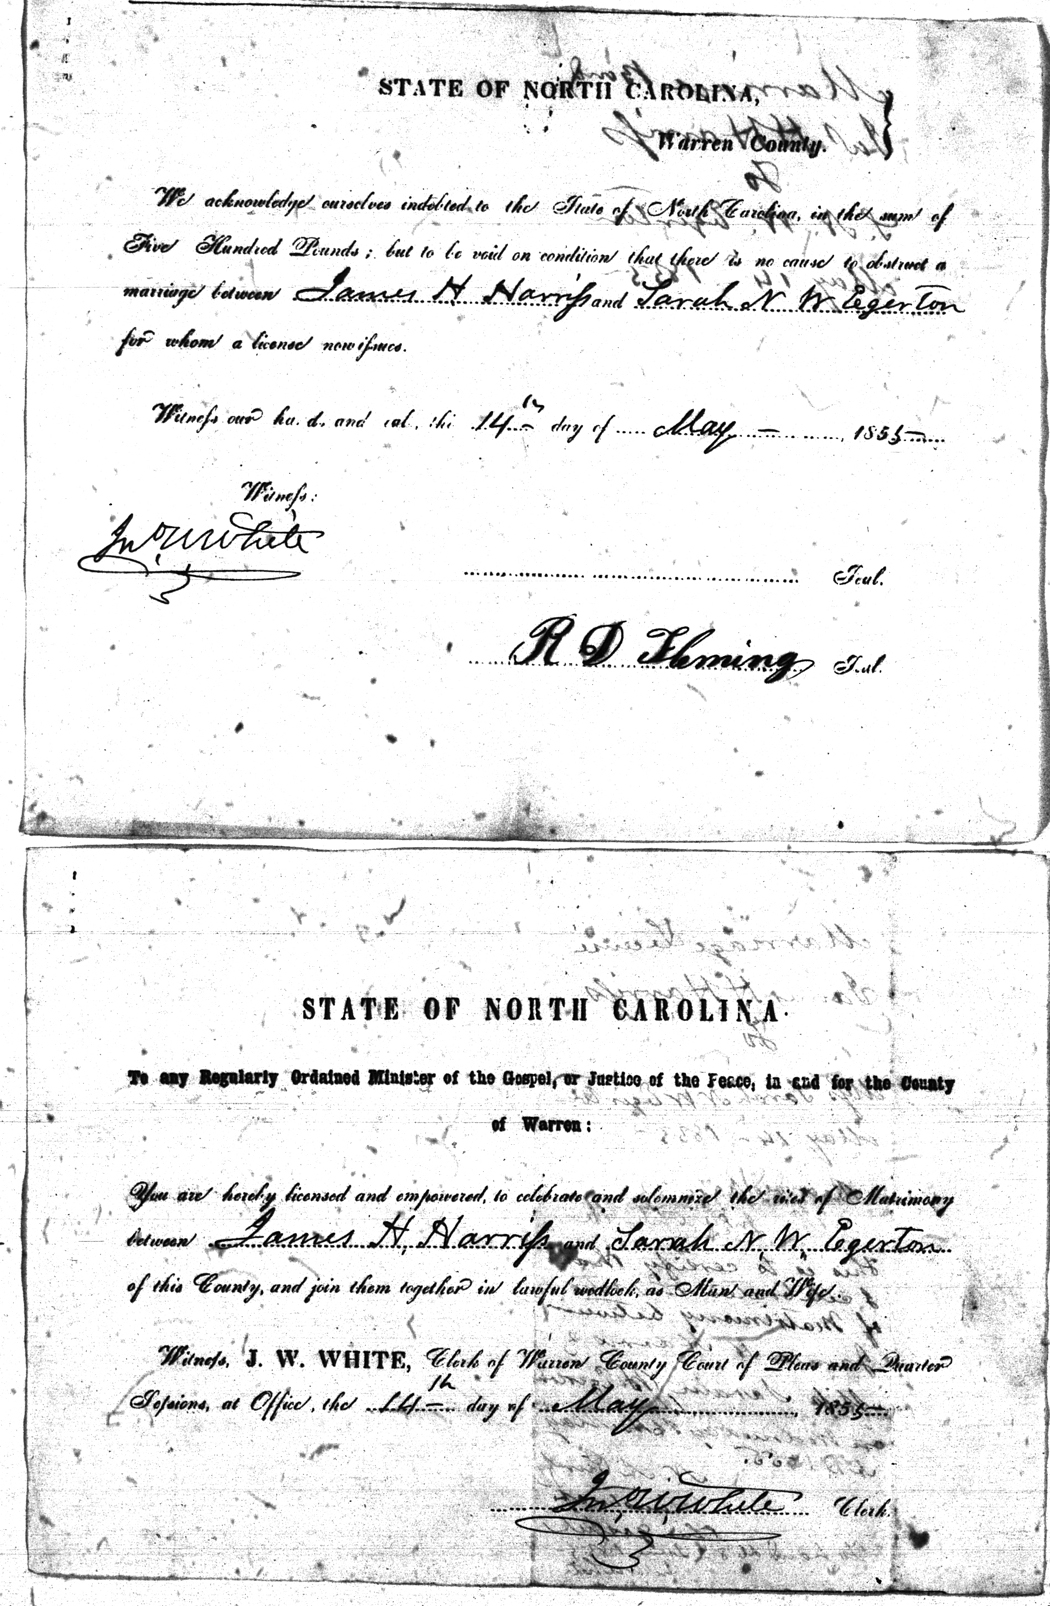 STATE OF NORTH CAROLINA,
Warren County.
We acknowledge ourselves indebted to the State of North Carolina, in the sum of
Five Hundred Pounds; but to be void on condition that there is no cause to obstruct a
marriage between James H Harriss and Sarah N W Egerton
for whom a license now issues.
Witness our ha.d. and eal, thi 14th day of May 1855
Witness:
Jno W White
Seal.
R D Fleming Seal.
Marriage License
Jas H Harriss
to
STATE OF NORTH CAROLINA.
To any Regularly Ordained Minister of the Gospel, or Justice of the Peace, in and for the County
of Warren:
May 14 1855
You are hereby licensed and empowered, to celebrate and solemnize the rites of Matrimony
between James H. Harriss and Sarah N W. Egerton
of this County, and join them together in lawful wedlock, as Man and Wife.
Witness, J. W. WHITE, Clerk of Warren County Court of Pleas and Quarter
Sessions, at Office, the 14th day of May, 1855
Jno W White Clerk.